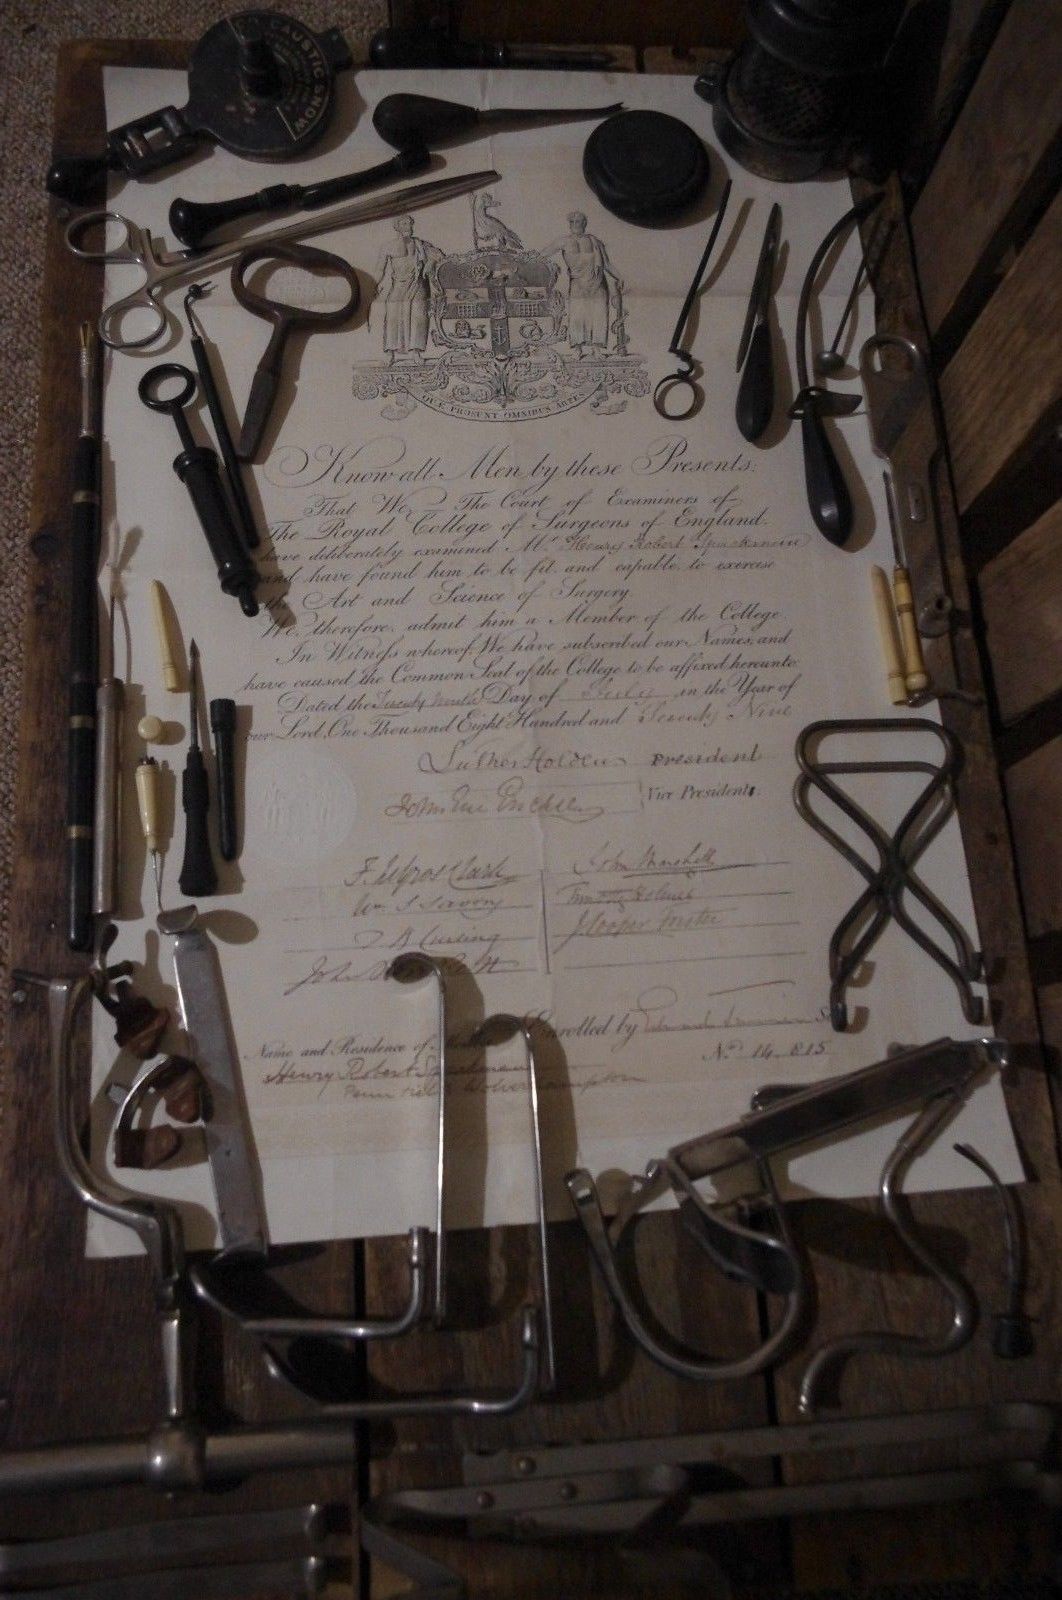 CAUSTIC
SNOW
QUÆ PROSUNT OMNIBUS ARTES
Know all Men by these Presents:
That We The Court of Examiners of
The Royal College of Surgeons of England.
have deliberately examined Mr Henry Robert
and have found him to be fit and capable to exercise
the Art and Science of Surgery.
We, therefore, admit him a Member of the College
In Witness whereof We have subscribed our Names, and
have caused the Common Seal of the College to be affixed hereunto
Dated the Twenty Ninth Day of July in the Year of
our Lord, One Thousand Eight Hundred and Seventy Nine
Luther Holden President
John Eric Erichsen Vice Presidents.
F. Le Gros Clark John Marshall
Wm S Savory Timothy Holmes
T B Curling J Cooper Forster
John
Enrolled by Edward Trimmer
Name and Residence of No. 14.815
Henry Robert
Wolverhampton